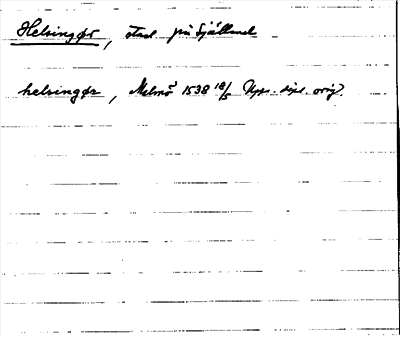 Helsingør, stad på Själland
helsingør, Malmö 1538 18/5 Upps. dipl. orig.